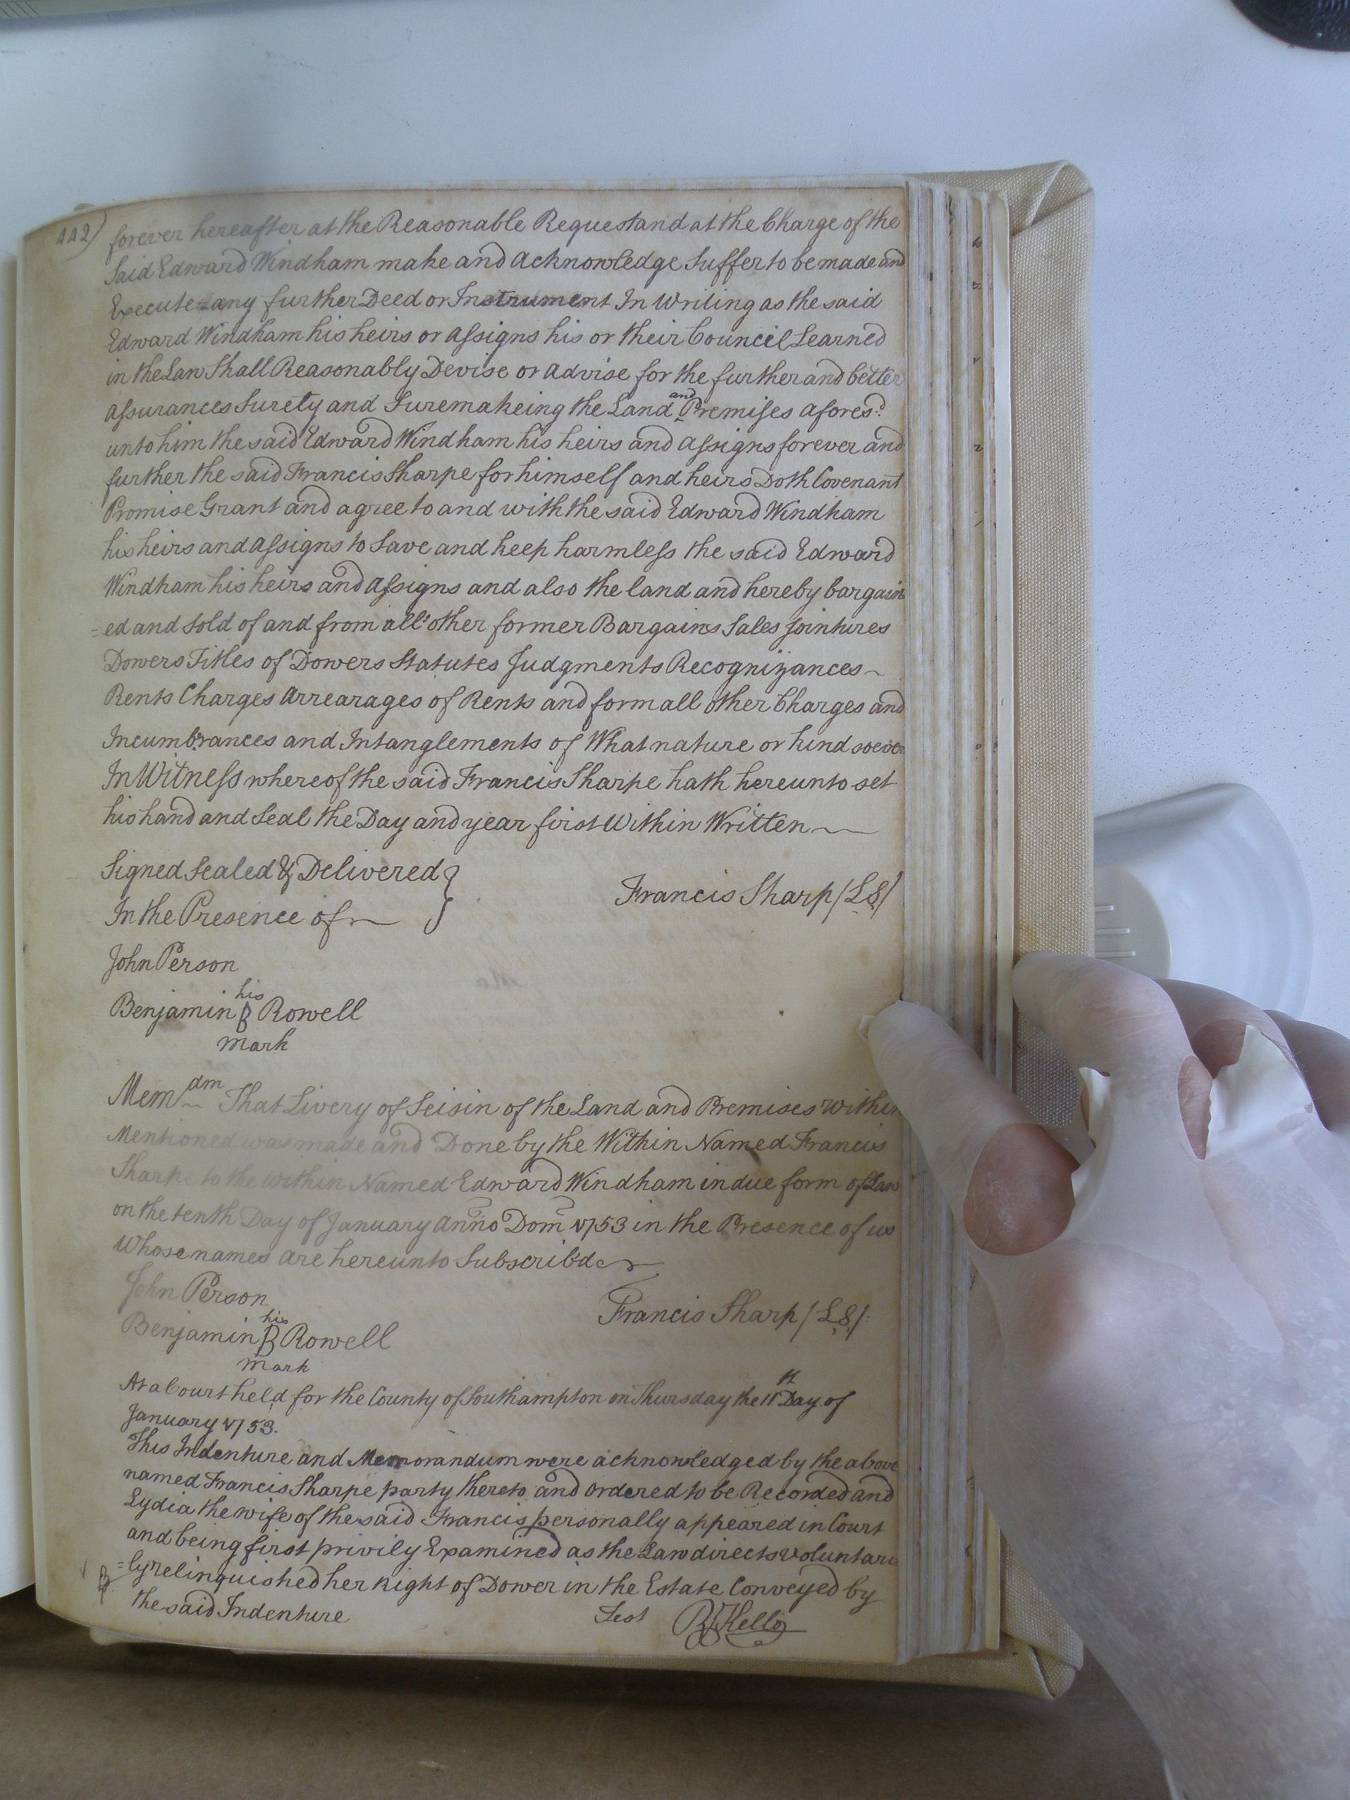 442)
forever hereafter at the Reasonable Request and at the Charge of the
Said Edward Windham make and acknowledge Suffer to be made and
Execute any further Deed or Instrument In Writing as the said
Edward Windham his heirs or assigns his or their Council Learned
in the Law Shall Reasonably Devise or advise for the further and better
assurances Surety and Suremakeing the Land and Premises afores:d
unto him the said Edward Windham his heirs and assigns forever and
further the said Francis Sharpe for himself and heirs Doth Covenant
Promise Grant and agree to and with the said Edward Windham
his heirs and assigns to Save and keep harmless the said Edward
Windham his heirs and assigns and also the land and hereby bargain
=ed and Sold of and from all other former Bargains Sales Jointures
Dowers Titles of Dowers Statutes Judgments Recognizances
Rents Charges Arrearages of Rents and form all other Charges and
Incumbrances and Intanglements of What nature or kind soever
In Witness whereof the said Francis Sharpe hath hereunto set
his hand and Seal the Day and year first Within Written
Signed Sealed & Delivered }
In the Presence of
Francis Sharp (LS)
John Person
Benjamin his B Rowell
mark
Mem:dm That Livery of Seisin of the Land and Premises within
Mentioned was made and Done by the Within Named Francis
Sharpe to the within Named Edward Windham in due form of Law
on the tenth Day of January Anno Dom 1753 in the Presence of us
Whose names are hereunto Subscribd
John Person
Francis Sharp (LS)
Benjamin his B Rowell
mark
At a Court held for the County of Southampton on Thursday the 11th Day of
January 1753.
This Indenture and Memorandum were acknowledged by the above
named Francis Sharpe party thereto and ordered to be Recorded and
Lydia the wife of the said Francis personally appeared in Court
and being first privily Examined as the Law directs voluntari
=ly relinquished her Right of Dower in the Estate Conveyed by
the said Indenture Test R Kello